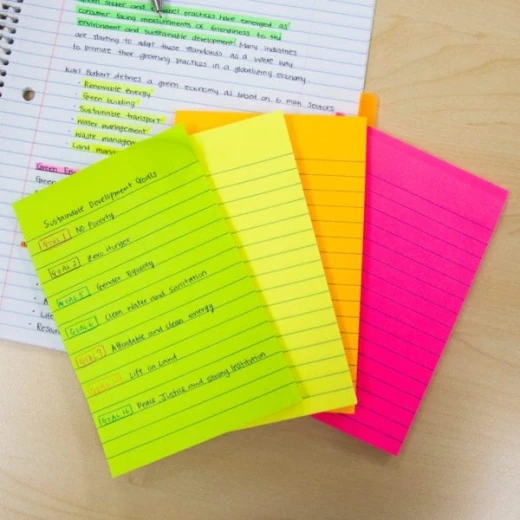 consumer facing measurements of friendliness to the
environment and sustainable development. Many industries
are starting to adapt these standards as a viable way
to promote their greening practices in a globalizing economy
Karl Burkart defines a green economy as based on 6 main sectors
· Renewable energy
· Green building
· Sustainable transport
· Water management
· Waste management
· Land
Green
Sustainable Development Goals
GOAL 1 No Poverty
GOAL 2 Zero Hunger
GOAL 5 Gender Equality
GOAL 6 Clean water and sanitation
GOAL 7 Affordable and clean energy
Life on Land
GOAL 16 Peace Justice and strong institution